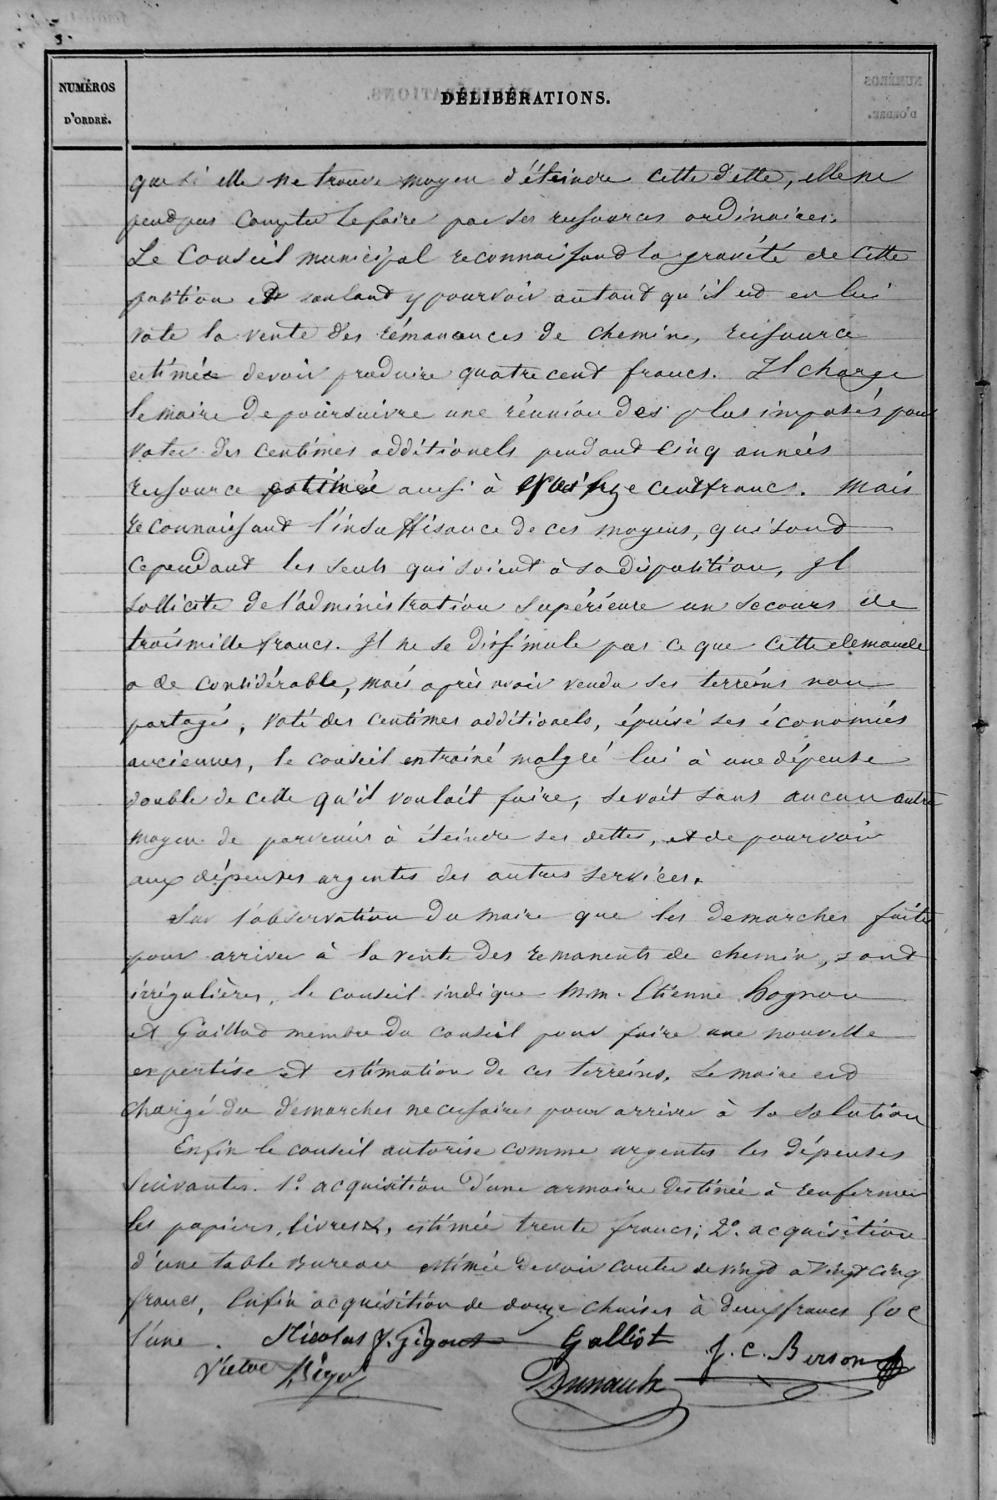 3.
NUMÉROS
D'ORDRE.
DÉLIBÉRATIONS.
que si elle ne trouve moyen d'éteindre cette dette, elle ne
peut pas compter le faire par ses ressources ordinaires.
Le Conseil municipal reconnaissant la gravité de cette
position et voulant y pourvoir autant qu'il est en lui
vote la vente des rémanences de chemins, ressource
estimée devoir produire quatre cent francs. Il charge
le maire de poursuivre une réunion des plus imposés pour
voter des centimes additionels pendant cinq années
ressource estimée aussi à cent francs. Mais
reconnaissant l'insuffisance de ces moyens, qui sont
cependant les seuls qui soient à sa disposition, Il
sollicite de l'administration supérieure un secours de
trois mille francs. Il ne se dissimule pas ce que cette demande
a de considérable, mais après avoir vendu ses terreins non
partagés, voté des centimes additionels, épuisé ses économies
anciennes, le conseil entrainé malgré lui à une dépense
double de celle qu'il voulait faire, serait sans aucun autre
moyen de parvenir à éteindre ses dettes, et de pourvoir
aux dépenses urgentes des autres services.
Sur l'observation du maire que les demarches faites
pour arriver à la vente des remanents de chemin, sont
irrégulières, le conseil indique M.M. Etienne Hognon
et Gaillot membre du conseil pour faire une nouvelle
expertise et estimation de ces terreins. Le maire est
chargé des demarches necessaires pour arriver à la solution
Enfin le conseil autorise comme urgentes les dépenses
suivantes. 1º. acquisition d'une armoire destinée à renfermer
les papiers, livres &, estimée trente francs; 2º. acquisition
d'une table bureau estimée devoir couter de vingt a vingt cinq
francs, Enfin acquisition de douze chaises à deux francs 50c
l'une. Nicolas J. Gigout Galliot J. C. Berson
Victor Dunault